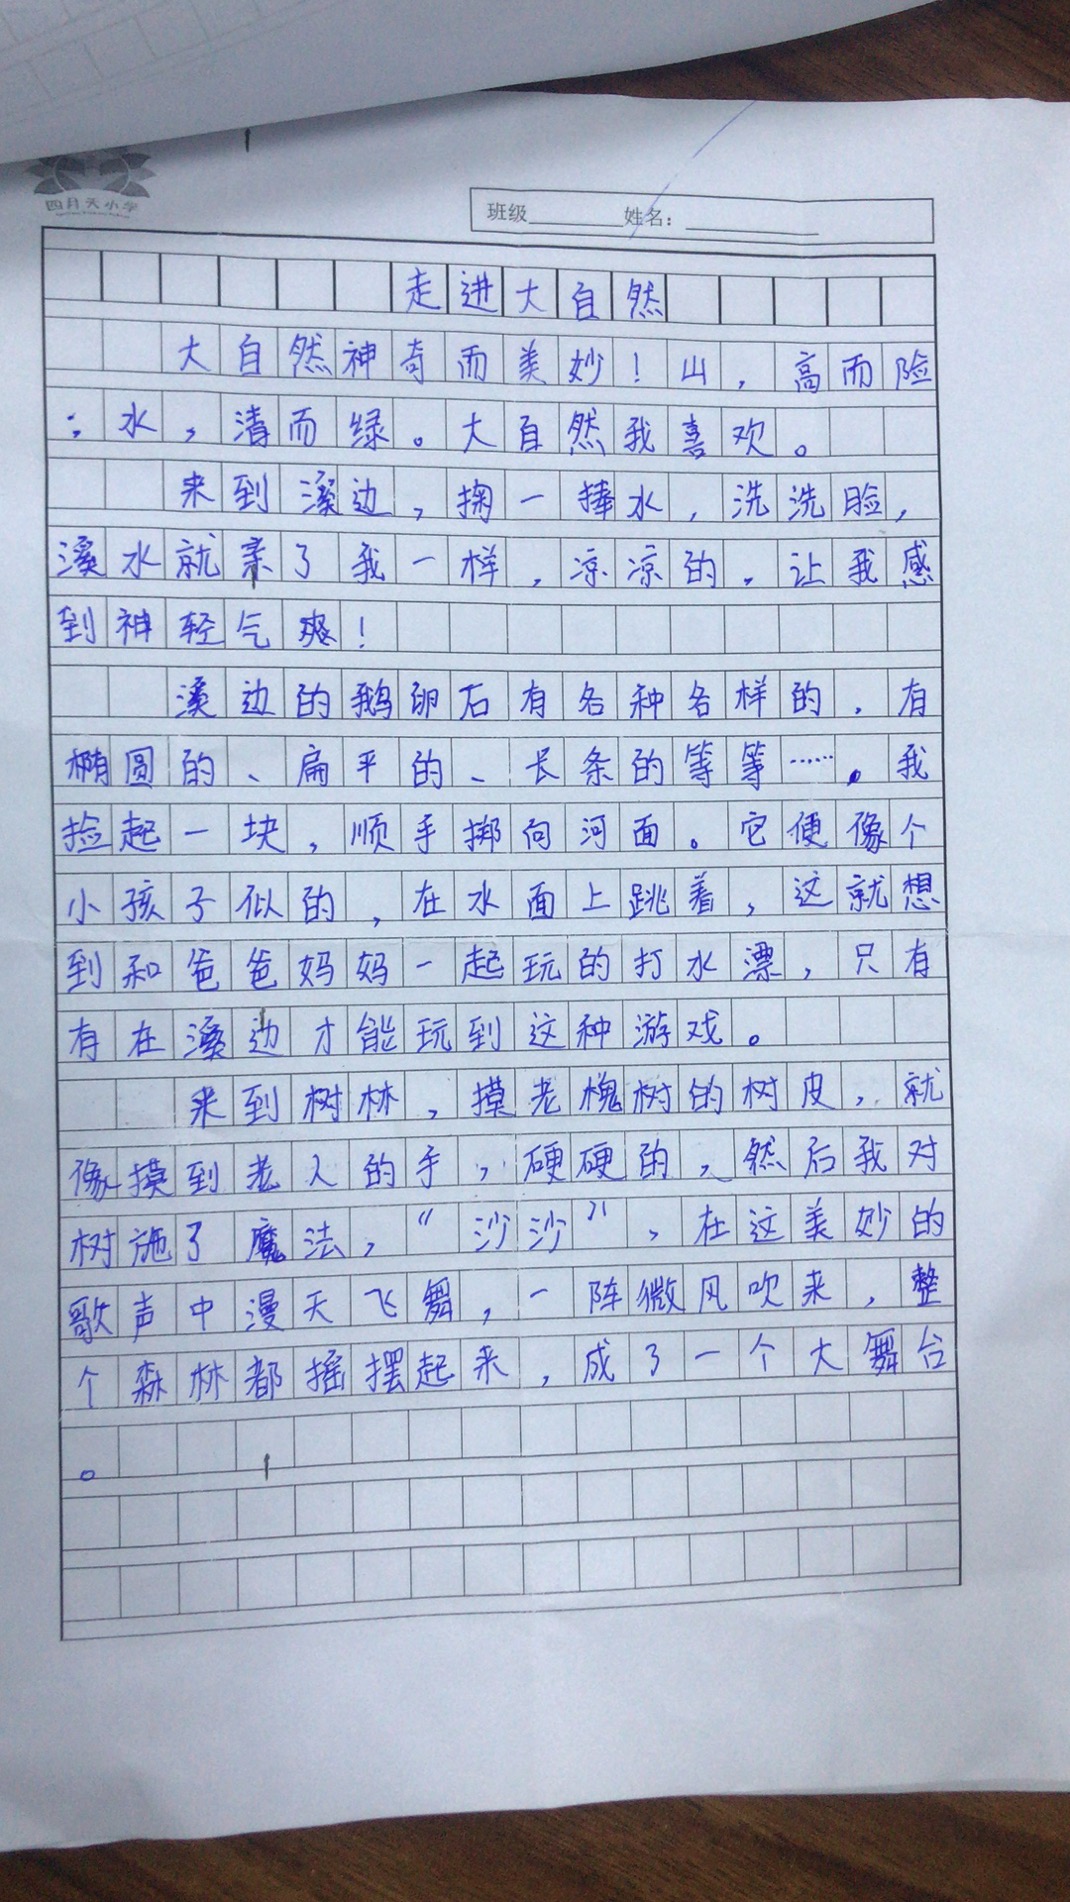 四月天小学
班级________姓名：__________
走进大自然
大自然神奇而美妙！山，高而险
；水，清而绿。大自然我喜欢。
来到溪边，掬一捧水，洗洗脸，
溪水就亲了我一样，凉凉的，让我感
到神轻气爽！
溪边的鹅卵石有各种各样的，有
椭圆的、扁平的、长条的等等……。我
捡起一块，顺手掷向河面。它便像个
小孩子似的，在水面上跳着，这就想
到和爸爸妈妈一起玩的打水漂，只有
有在溪边才能玩到这种游戏。
来到树林，摸老槐树的树皮，就
像摸到老人的手，硬硬的，然后我对
树施了魔法，“沙沙”，在这美妙的
歌声中漫天飞舞，一阵微风吹来，整
个森林都摇摆起来，成了一个大舞台
。